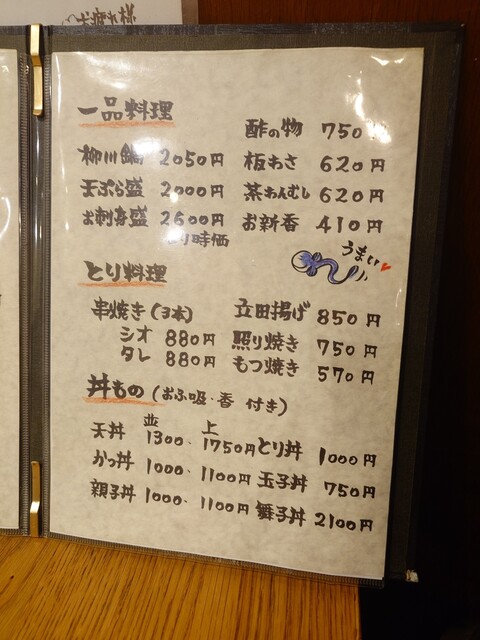 お疲れ様
一品料理
酢の物 750
柳川鍋 2050円 板わさ 620円
天ぷら盛 2000円 茶わんむし 620円
お刺身盛 2600円 お新香 410円
より時価
うまい
とり料理
串焼き(3本) 立田揚げ 850円
シオ 880円 照り焼き 750円
タレ 880円 もつ焼き 570円
丼もの(おふ吸・香 付き)
並 上
天丼 1300・1750円 とり丼 1000円
かつ丼 1000・1100円 玉子丼 750円
親子丼 1000・1100円 舞子丼 2100円